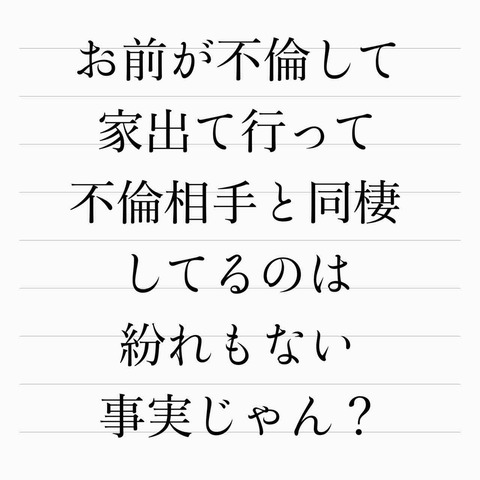 お前が不倫して
家出て行って
不倫相手と同棲
してるのは
紛れもない
事実じゃん？